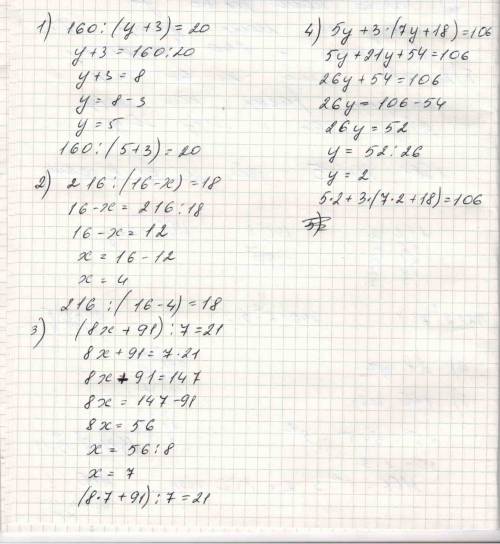 1) 160:(y+3)=20
y+3=160:20
y+3=8
y=8-3
y=5
160:(5+3)=20
2) 216:(16-x)=18
16-x=216:18
16-x=12
x=16-12
x=4
216:(16-4)=18
3) (8x+91):7=21
8x+91=7·21
8x+91=147
8x=147-91
8x=56
x=56:8
x=7
(8·7+91):7=21
4) 5y+3·(7y+18)=106
5y+21y+54=106
26y+54=106
26y=106-54
26y=52
y=52:26
y=2
5·2+3·(7·2+18)=106
5)